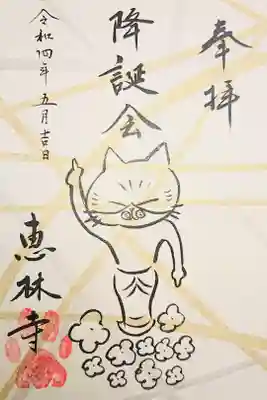 奉拝
降誕会
令和四年五月吉日
恵林寺